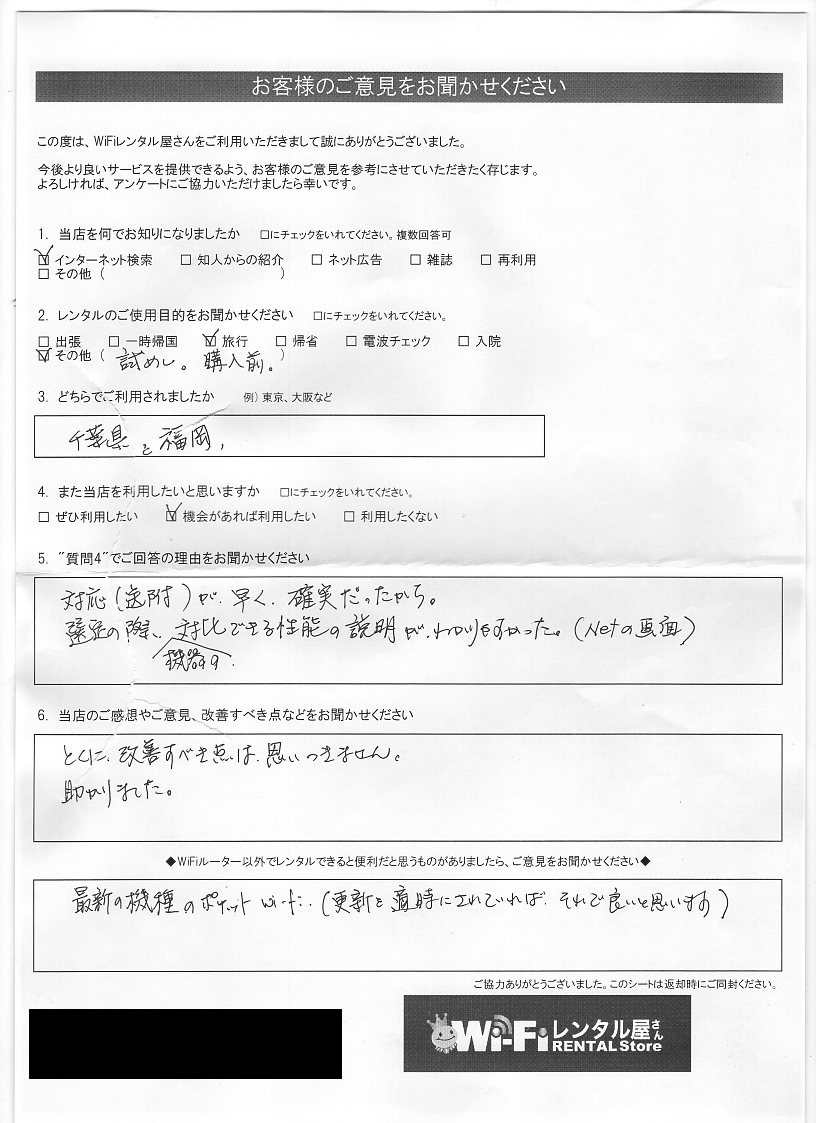 お客様のご意見をお聞かせください
この度は、WiFiレンタル屋さんをご利用いただきまして誠にありがとうございました。
今後より良いサービスを提供できるよう、お客様のご意見を参考にさせていただきたく存じます。
よろしければ、アンケートにご協力いただけましたら幸いです。
1. 当店を何でお知りになりましたか □にチェックをいれてください。複数回答可
☑ インターネット検索 □ 知人からの紹介 □ ネット広告 □ 雑誌 □ 再利用
□ その他 ( )
2. レンタルのご使用目的をお聞かせください □にチェックをいれてください。
□ 出張 □ 一時帰国 ☑ 旅行 □ 帰省 □ 電波チェック □ 入院
☑ その他 ( 試めし。購入前。 )
3. どちらでご利用されましたか 例) 東京、大阪など
千葉県と福岡,
4. また当店を利用したいと思いますか □にチェックをいれてください。
□ ぜひ利用したい ☑ 機会があれば利用したい □ 利用したくない
5. "質問4"でご回答の理由をお聞かせください
対応(送附)が、早く、確実だったから。
選定の際、対比できる性能の説明が、わかりやすかった。(Netの画面)
機器の
6. 当店のご感想やご意見、改善すべき点などをお聞かせください
とくに、改善すべき点は、思いつきません。
助かりました。
◆WiFiルーター以外でレンタルできると便利だと思うものがありましたら、ご意見をお聞かせください◆
最新の機種のポケットwi-fi.(更新を適時にされていれば、それで良いと思います)
ご協力ありがとうございました。このシートは返却時にご同封ください。
Wi-Fiレンタル屋さん
RENTAL Store